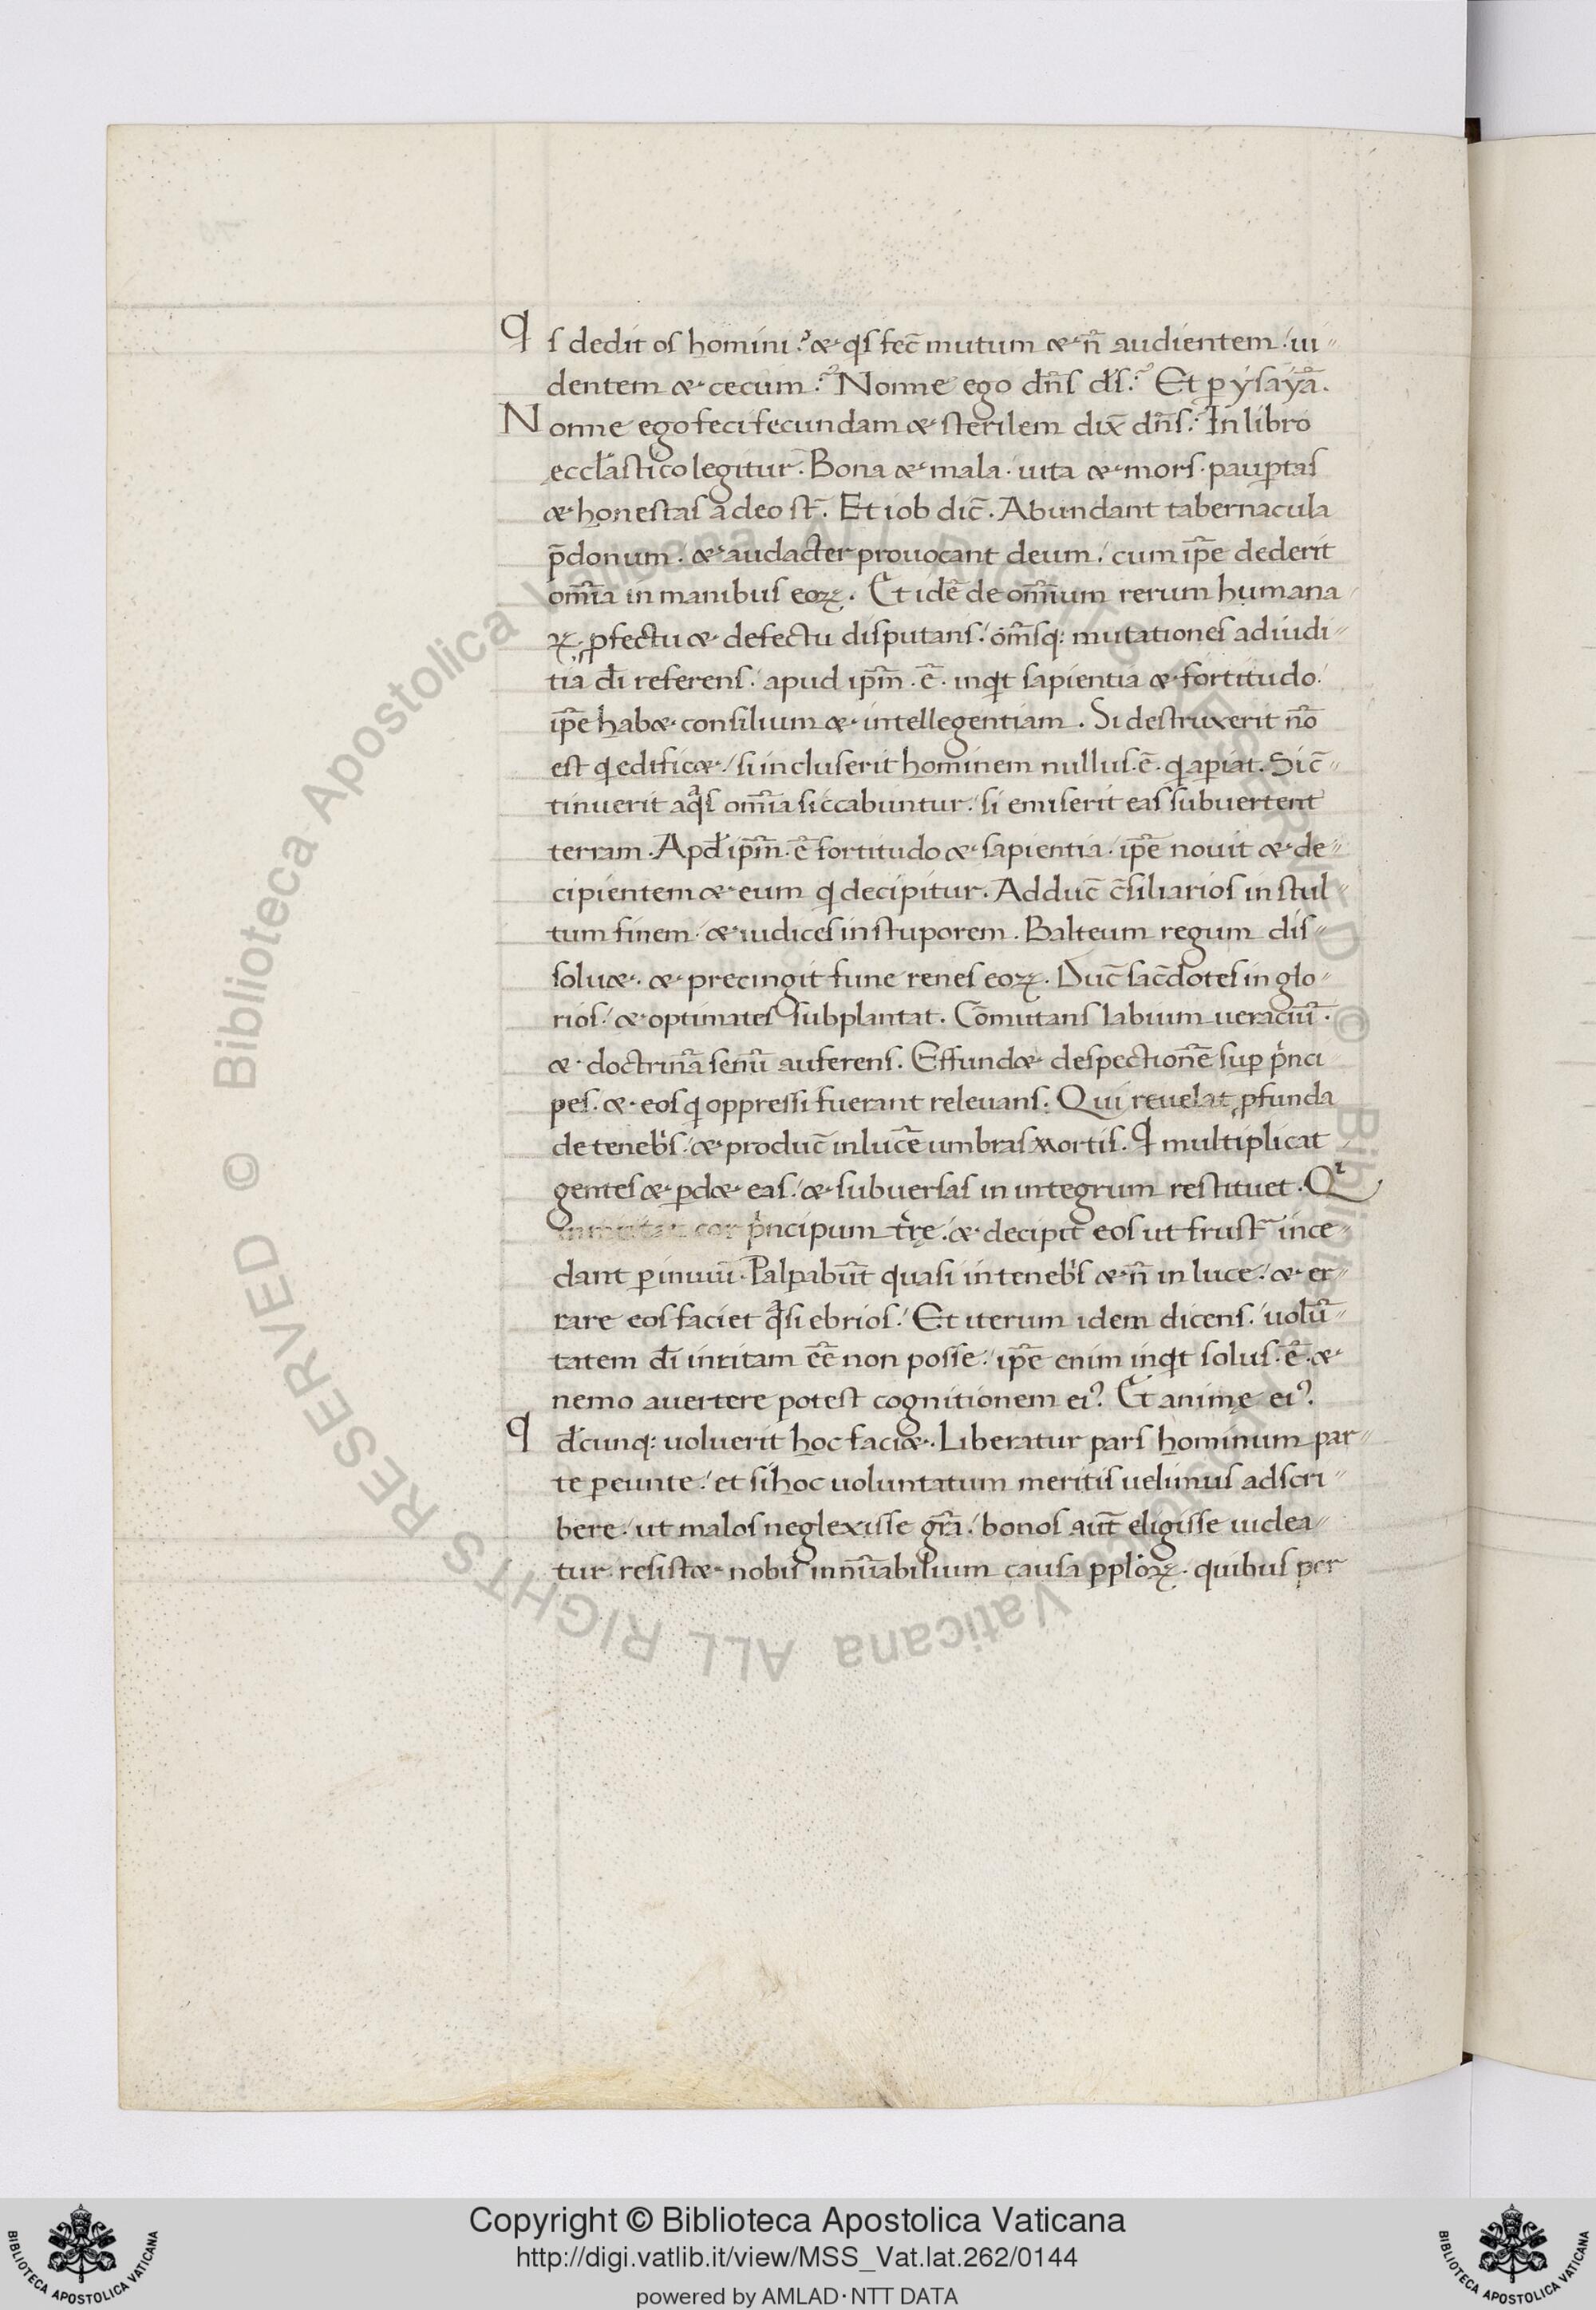 Qs dedit os homini? & qs fec̄ mutum & n̄ audientem / ui
dentem & cecum? Nonne ego dn̄s d̄s? Et p ysayā.
Nonne ego feci fecundam & sterilem dix̄ dn̄s? In libro
eccl'astico legitur. Bona & mala · uita & mors · paup̄tas
& honestas a deo st̄. Et iob dic̄. Abundant tabernacula
p̄donum · & audacter prouocant deum / cum ip̄e dederit
om̄ia in manibus eoꝝ. Et idē de om̄ium rerum humana
ꝝ ꝓfectu & defectu disputans / om̄sq: mutationes ad iudi
tia d̄i referens / apud ip̄m · ē · inqt sapientia & fortitudo /
ip̄e hab& consilium & intellegentiam. Si destruxerit nō
est q edific& / si incluserit hominem nullus · ē · q apiat. Si c̄
tinuerit aqs om̄ia siccabuntur / si emiserit eas subuertent
terram. Apd ip̄m · ē fortitudo & sapientia · ip̄e nouit & de
cipientem & eum q decipitur. Adduc̄ c̄siliarios in stul
tum finem · & iudices in stuporem. Balteum regum dis
solu& · & precingit fune renes eoꝝ. Duc̄ sac̄dotes in glo
rios / & optimates subplantat. Cōmutans labium ueraciū ·
& doctrinā senū auferens. Effund& despectionē sup p̍nci
pes · & eos q oppressi fuerant releuans. Qui reuelat ꝓfunda
de teneb̍s / & produc̄ in lucē umbras mortis. Q multiplicat
gentes & pd& eas / & subuersas in integrum restituet. Q
inmutat cor p̍ncipum t̄rę / & decipit eos ut frust̄ ince
dant p inuiū. Palpabūt quasi in teneb̍s & n̄ in luce / & er
rare eos faciet qsi ebrios / Et iterum idem dicens / uolū
tatem d̄i irritam eē non posse / ip̄e enim inqt solus · ē · &
nemo auertere potest cognitionem ei9. Et animę ei9.
qdcunq: uoluerit hoc faci&. Liberatur pars hominum par
te peunte / et si hoc uoluntatum meritis uelimus adscri
bere / ut malos neglexisse gr̄a / bonos aut̄ eligisse uidea
tur resist& nobis innūabilium causa pploꝝ · quibus per
Copyright © Biblioteca Apostolica Vaticana
http://digi.vatlib.it/view/MSS_Vat.lat.262/0144
powered by AMLAD·NTT DATA
BIBLIOTECA APOSTOLICA VATICANA
BIBLIOTECA APOSTOLICA VATICANA
© Biblioteca Apostolica Vaticana ALL RIGHTS RESERVED